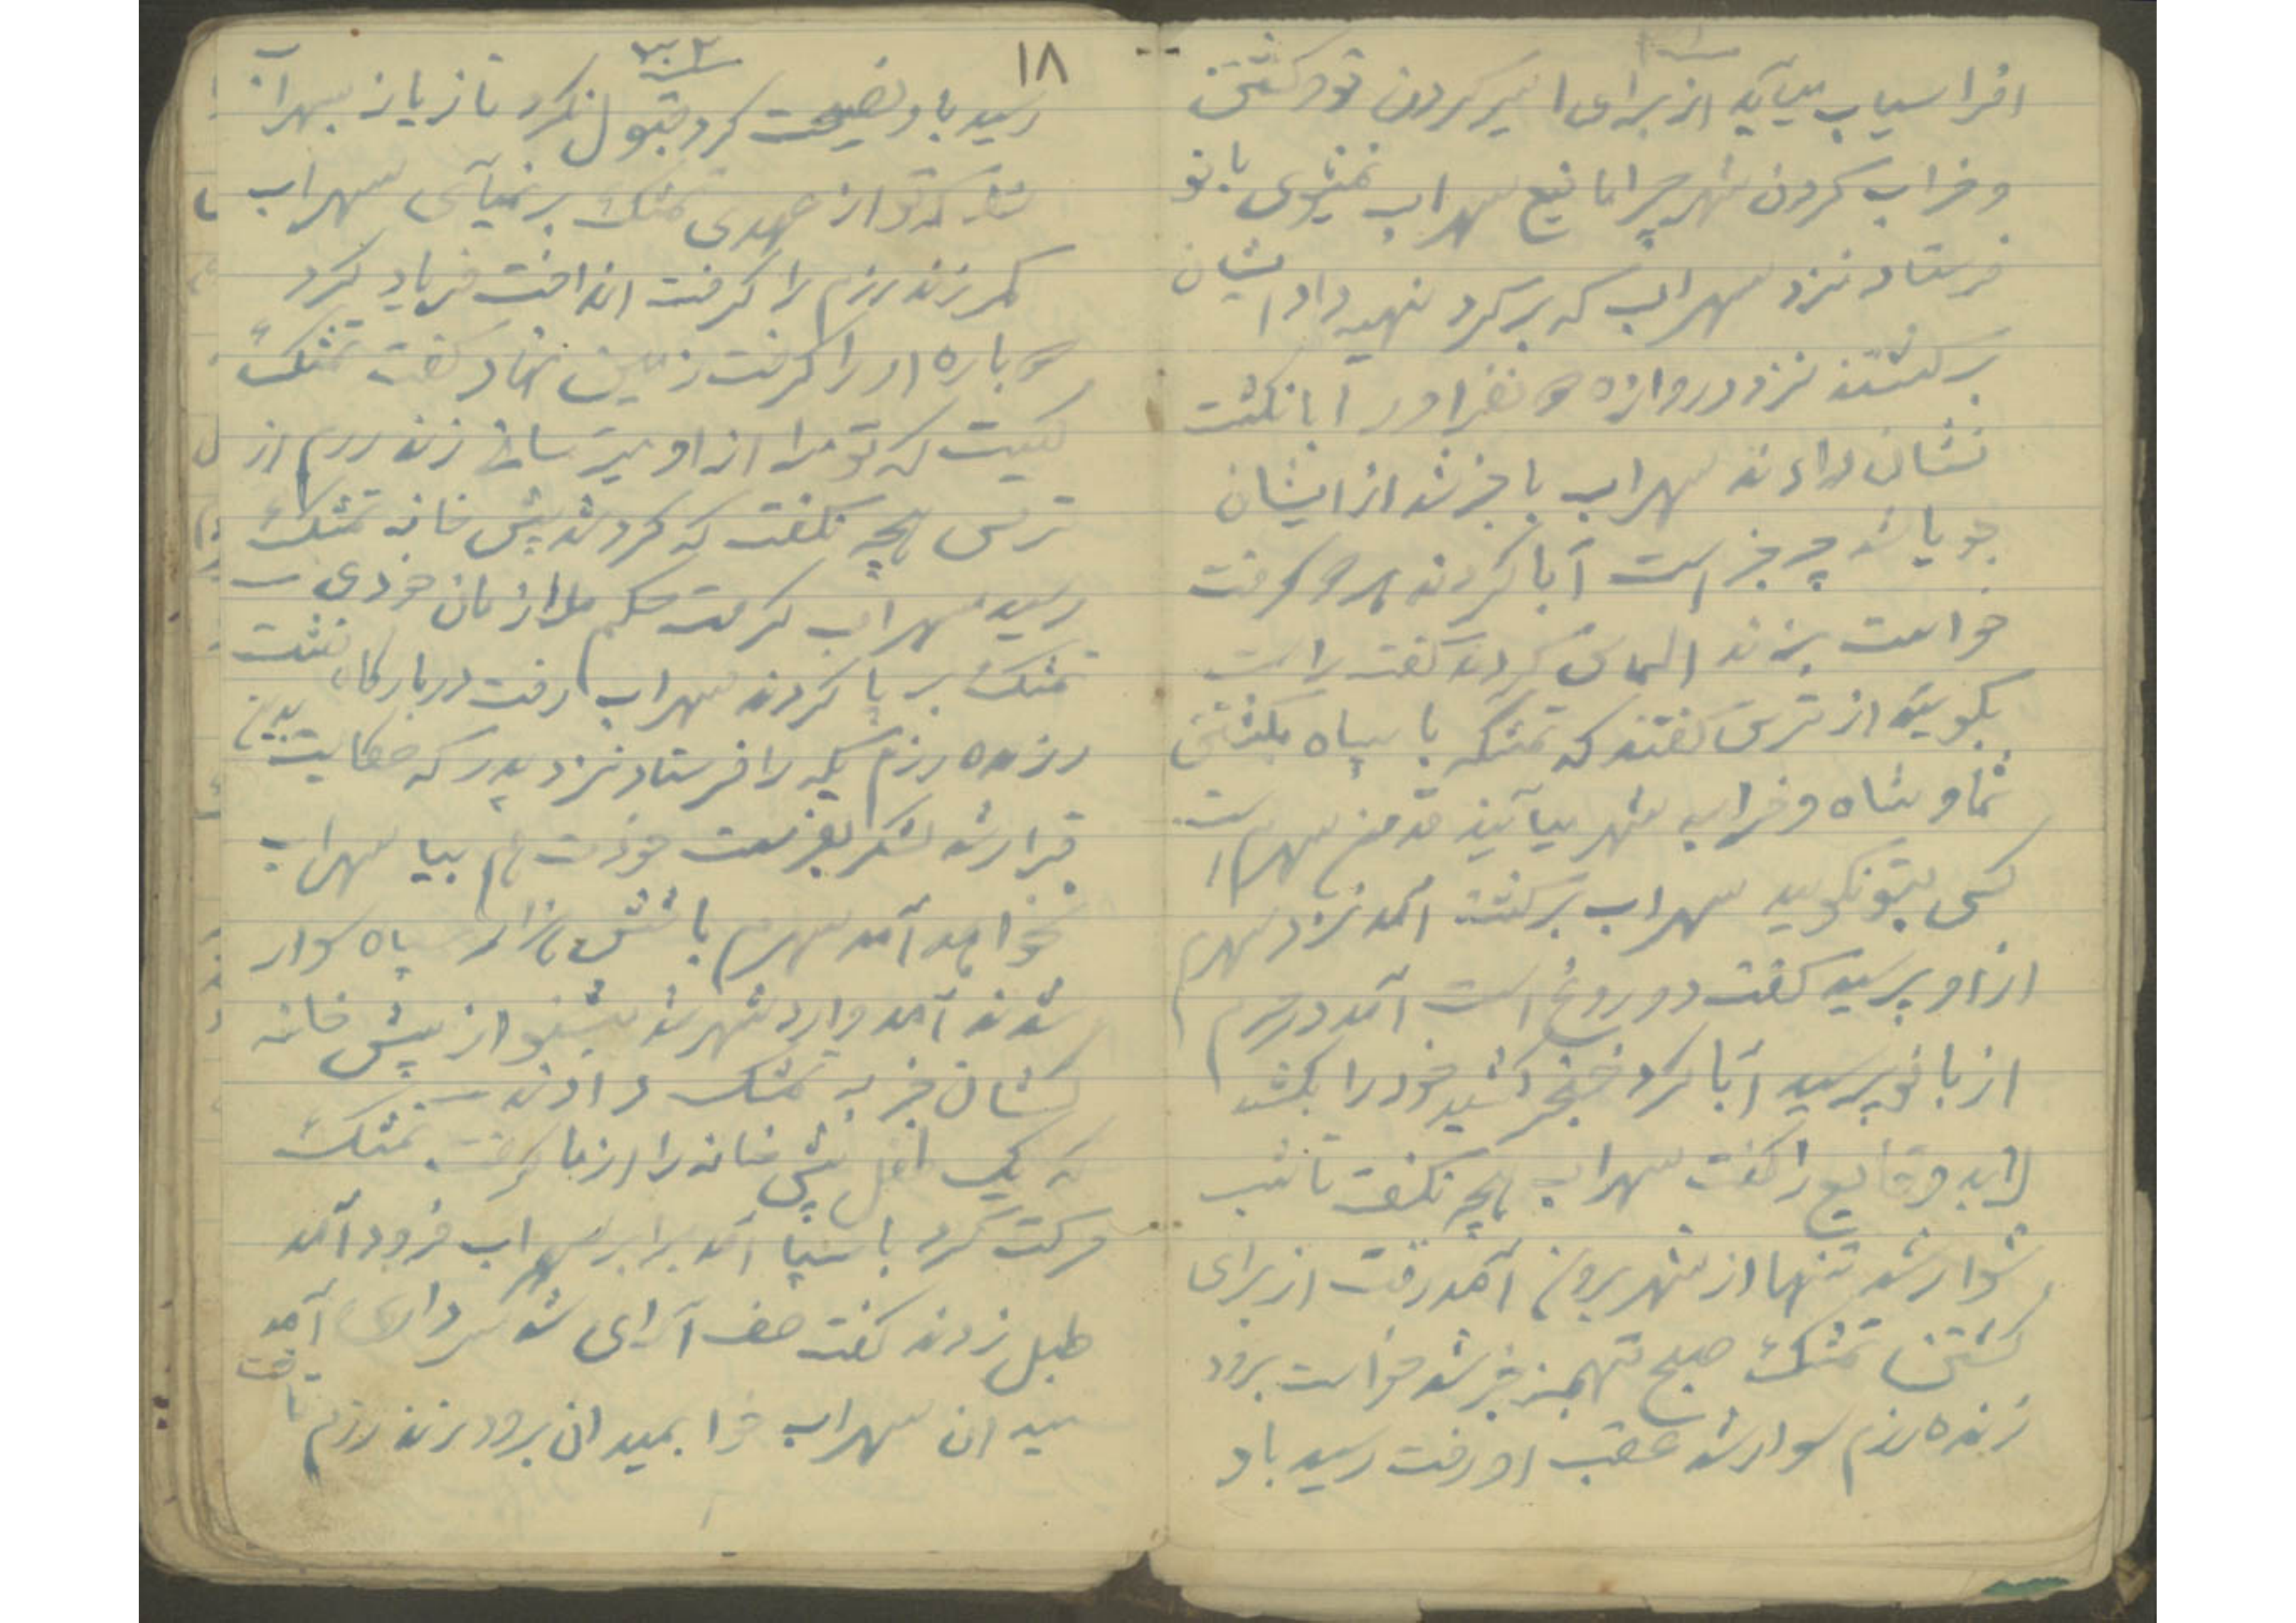 افراسیاب میآید از برای اسیر کردن تو و کشتن
و خراب کردن شهر چرا مانیع سهراب نمیشوی بانو
فرستاد نزد سهراب که برگرد نهیه داد ایشان
برگشتند نزد دروازه دو نفر اورا بانگشت
نشان دادند سهراب باخبر شد از ایشان
جویا شد چه خبر است آبا کردند هر دو گرفت
خواست بزند التماس کردند گفت راست
بگویید از ترس گفتند که تمتک با سپاه بکشتن
شما و شاه و خراب شهر میآیند قدمن سهرم است
کسی بتو نگوید سهراب برگشت آمد نزد سهرم
از او پرسید گفت دوروغ است آمد در حرم
از بانو پرسید آبا کرد خنجر کشید خود را بکشد
لابد وقایع را گفت سهراب هیچه نگفت تا شب
سوار شد تنها از شهر برون آمد رفت از برای
کشتن تمتک صبح تهمینه خبر شد خواست برود
زنده رزم سوار شد عقب او رفت رسید باو
۱۸
رسید باو نصیحت کرد قبول نکرد تازیانه بسهراب
که تو از عهدی تمتک بر نمیآی سهراب
کمر زنده رزم را گرفت انداخت فریاد کرد
دو باره او را گرفت زمین نهاد گفت تمتک
کیست که تو مرا از او میترسانی زنده رزم از
ترس هیچه نگفت که گرد شد پیش خانه تمتک
رسید سهراب گرفت حکم ملازمان خودی
تمتک بر پا کردند سهراب رفت در بارگاه نشست
زنده رزم یکه را فرستاد نزد پدر که حکایت بدین
قرار شد لشکر بفرست خودت هم بیا سهراب
نخواهد آمد سهرم با شش هزار سپاه سوار
شدند آمد وارد شهر شد بشنو از پیش خانه
کشان خبر به تمتک دادند
که یک طفل پیش خانه را از ما گرفت تمتک
حرکت کرد با سپا آمد برابر سهراب فرود آمد
طبل زدند گفت صف آرای شد سرداری آمد
میدان سهراب خوا بمیدان برود زنده رزم تاخت